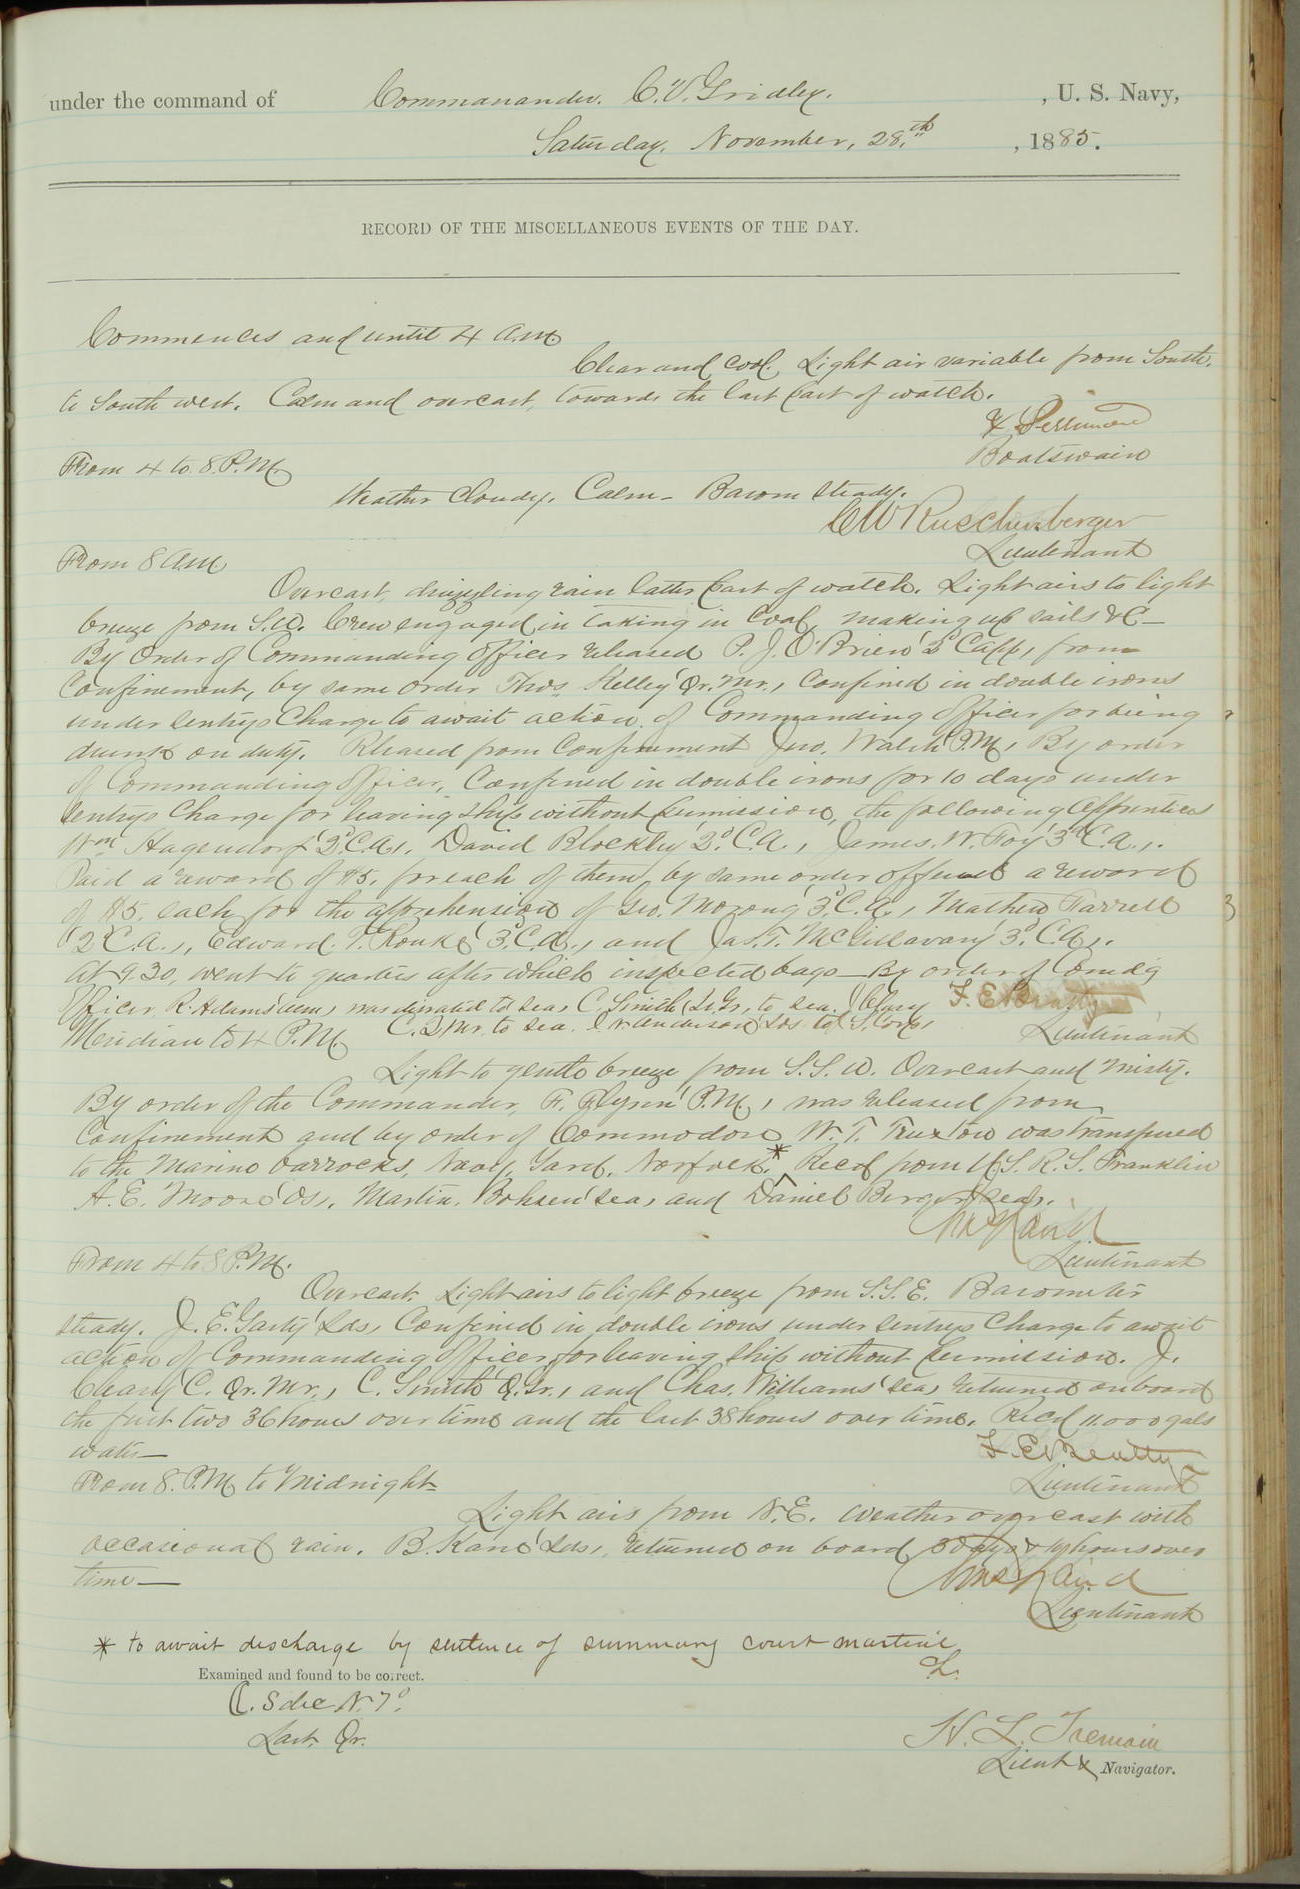 under the command of Commanander. C. V. Gridley. , U. S. Navy,
Saturday, November, 28.th , 1885.
RECORD OF THE MISCELLANEOUS EVENTS OF THE DAY.
Commences and until 4 A.M.
Clear and cool. Light air variable from South.
to South west. Calm and overcast, towards the last part of watch.
Boatswain
From 4 to 8 P.M.
Weather Cloudy. Calm - Barom steady.
C W Ruschenberger
Lieutenant
From 8 A.M
Overcast, drizzling rain latter part of watch. Light airs to light
breeze from S.W. Crew engaged in taking in coal, making up sails &c -
By order of Commanding Officer released P. J. O'Brien from
Confinement, by same order Thos Kelley Qr. Mr., Confined in double irons
under sentrys Charge to await action of Commanding Officer for being
drunk on duty. Released from Confinement Jno. Walsh P.M., By order
of Commanding Officer, Confined in double irons for 10 days under
sentrys Charge for leaving ship without permission, the following apprentices
Wm Hagendorf 2d C.A., David Blockley 2d C.A., James. W. Foy 3d C.A.,.
Paid a reward of $5. for each of them, by same order offered a reward
of $5. each for the apprehension of Geo. Morong 3d C.A., Mathew Farrell
2d C.A., Edward T. Rourke 3d C.A., and Jas. T. McGillavary 3d C.A.,.
At 9.30, went to quarters after which inspected bags - By order of Comdg
Officer R. Adams was disrated to Sea, C. Smith Qr Gr, to Sea. J Cleary F. E. Beatty
C. Q Mr. to Sea. Anderson Lds to
Lieutenant
Meridian to 4 P.M.
Light to gentle breeze from S.S.W. Overcast and misty.
By order of the Commander F. Flynn P.M., was released from
Confinement and by order of Commodore W. T. Truxtow was transfered
to the Marine barrocks, Navy, Yard, Norfolk.* Recd from U.S.R.S. Franklin
A. E. Moore Os, Martin. Bohsen Sea, and Daniel Berger Sea,.
Lieutenant
From 4 to 8 P.M.
Overcast. Light airs to light breeze from S.S.E. Barometer
steady. J. E. Garty Lds, Confined in double irons under sentrys Charge to await
action of Commanding Officer, for leaving ship without permission. J.
Cleary C. Qr. Mr., C. Smith Q. Gr., and Chas. Williams Sea, returned on board
the first two 36 hours over time and the last 38 hours over time. Recd 11.000 gals
water -
F. E. Beatty
Lieutenant
From 8. P.M. to Midnight -
Light airs from N.E. Weather overcast with
occasional rain. B. Kane Lds, returned on board 3 days & 19 hours over
time -
Lieutenant
* to await discharge by sentence of summary court martial
L.
Examined and found to be correct.
Last Qr.
H. L. Tremain
Lieut & Navigator.